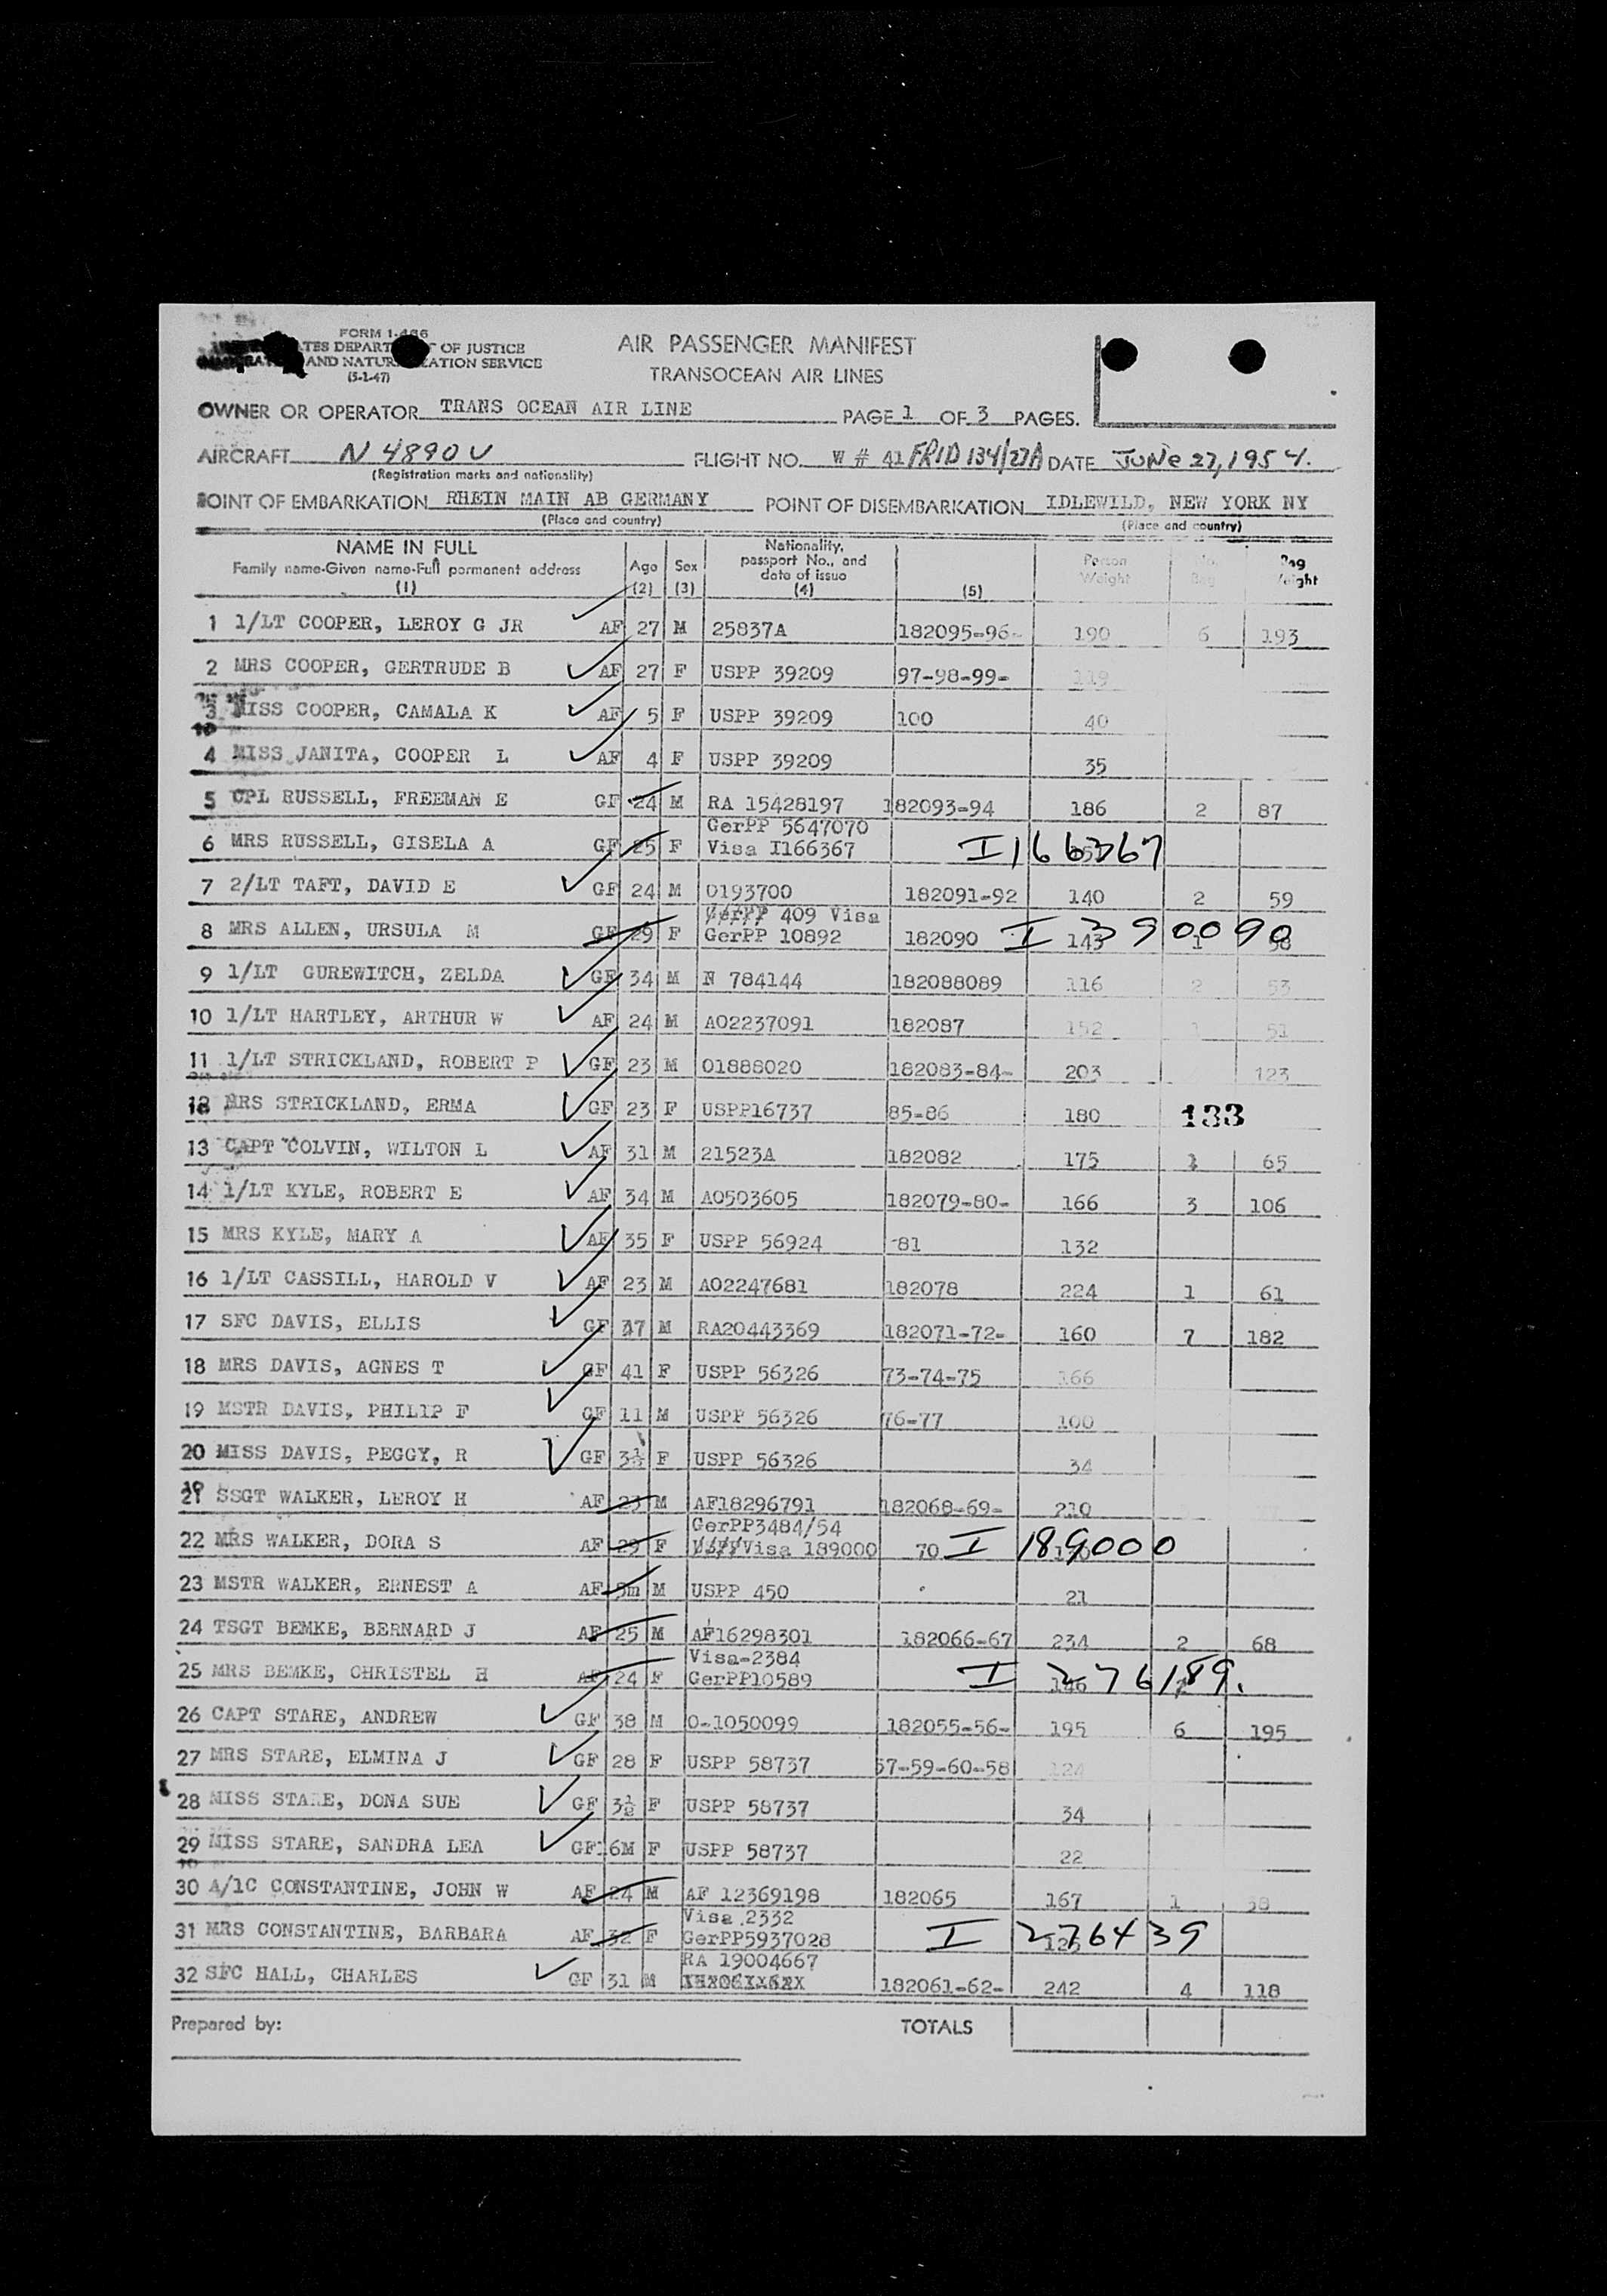 FORM I-466
TES DEPART OF JUSTICE
AND NATUR ATION SERVICE
(5-1-47)
AIR PASSENGER MANIFEST
TRANSOCEAN AIR LINES
OWNER OR OPERATOR TRANS OCEAN AIR LINE PAGE 1 OF 3 PAGES.
AIRCRAFT N 4890V FLIGHT NO. W # 41 FRID 134/27A DATE JUNE 27, 1954.
(Registration marks and nationality)
POINT OF EMBARKATION RHEIN MAIN AB GERMANY POINT OF DISEMBARKATION IDLEWILD, NEW YORK NY
(Place and country) (Place and country)
NAME IN FULL Family name-Given name-Full permanent address (1) Age (2) Sex (3) Nationality, passport No., and date of issue (4) (5) Person Weight No. Bag Bag Weight
1 1/LT COOPER, LEROY G JR AF 27 M 25837A 182095-96- 190 6 193
2 MRS COOPER, GERTRUDE B AF 27 F USPP 39209 97-98-99- 119
3 MISS COOPER, CAMALA K AF 5 F USPP 39209 100 40
4 MISS JANITA, COOPER L AF 4 F USPP 39209 35
5 CPL RUSSELL, FREEMAN E GF 24 M RA 15428197 182093-94 186 2 87
GerPP 5647070
6 MRS RUSSELL, GISELA A GF 25 F Visa I166367 I166367
7 2/LT TAFT, DAVID E GF 24 M 0193700 182091-92 140 2 59
GerPP 409 Visa
8 MRS ALLEN, URSULA M GF 29 F GerPP 10892 182090 143 1 58 I 390090
9 1/LT GUREWITCH, ZELDA GF 34 M N 784144 182088089 116 2 53
10 1/LT HARTLEY, ARTHUR W AF 24 M AO2237091 182087 152 1 51
11 1/LT STRICKLAND, ROBERT P GF 23 M 01888020 182083-84- 203 123
12 MRS STRICKLAND, ERMA GF 23 F USPP16737 85-86 180 133
13 CAPT COLVIN, WILTON L AF 31 M 21523A 182082 175 1 65
14 1/LT KYLE, ROBERT E AF 34 M AO503605 182079-80- 166 3 106
15 MRS KYLE, MARY A AF 35 F USPP 56924 -81 132
16 1/LT CASSILL, HAROLD V AF 23 M AO2247681 182078 224 1 61
17 SFC DAVIS, ELLIS GF 37 M RA20443369 182071-72- 160 7 182
18 MRS DAVIS, AGNES T GF 41 F USPP 56326 73-74-75 166
19 MSTR DAVIS, PHILIP F GF 11 M USPP 56326 76-77 100
20 MISS DAVIS, PEGGY, R GF 3½ F USPP 56326 34
21 SSGT WALKER, LEROY H AF 23 M AF18296791 182068-69- 210
GerPP3484/54
22 MRS WALKER, DORA S AF 29 F Visa 189000 70 I 189000
23 MSTR WALKER, ERNEST A AF 9m M USPP 450 21
24 TSGT BEMKE, BERNARD J AF 25 M AF16298301 182066-67 234 2 68
Visa-2384
25 MRS BEMKE, CHRISTEL H AF 24 F GerPP10589 146 I 276189.
26 CAPT STARE, ANDREW GF 38 M O-1050099 182055-56- 195 6 195
27 MRS STARE, ELMINA J GF 28 F USPP 58737 57-59-60-58 124
28 MISS STARE, DONA SUE GF 3½ F USPP 58737 34
29 MISS STARE, SANDRA LEA GF 6M F USPP 58737 22
30 A/1C CONSTANTINE, JOHN W AF 24 M AF 12369198 182065 167 1 38
Visa 2332
31 MRS CONSTANTINE, BARBARA AF 32 F GerPP5937028 I 276439
RA 19004667
32 SFC HALL, CHARLES GF 31 M 182061-62- 242 4 118
Prepared by: TOTALS